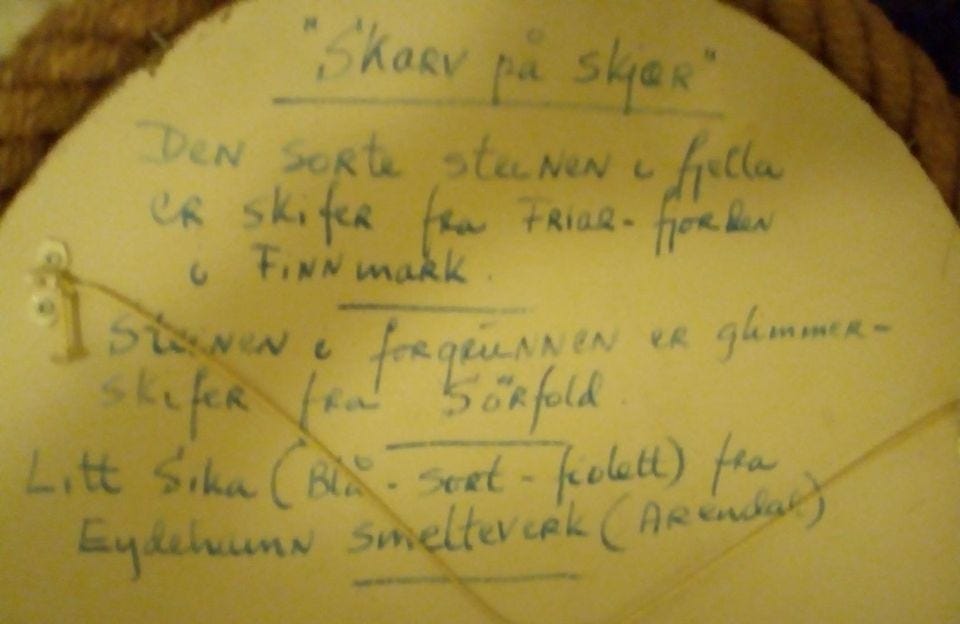 "Skarv på skjær"
Den sorte steinen i fjella
er skifer fra Friar-fjorden
i Finnmark.
Steinen i forgrunnen er glimmer-
skifer fra Sörfold.
Litt Sika (Blå-sort-fiolett) fra
Eydehunn smelteverk (Arendal)